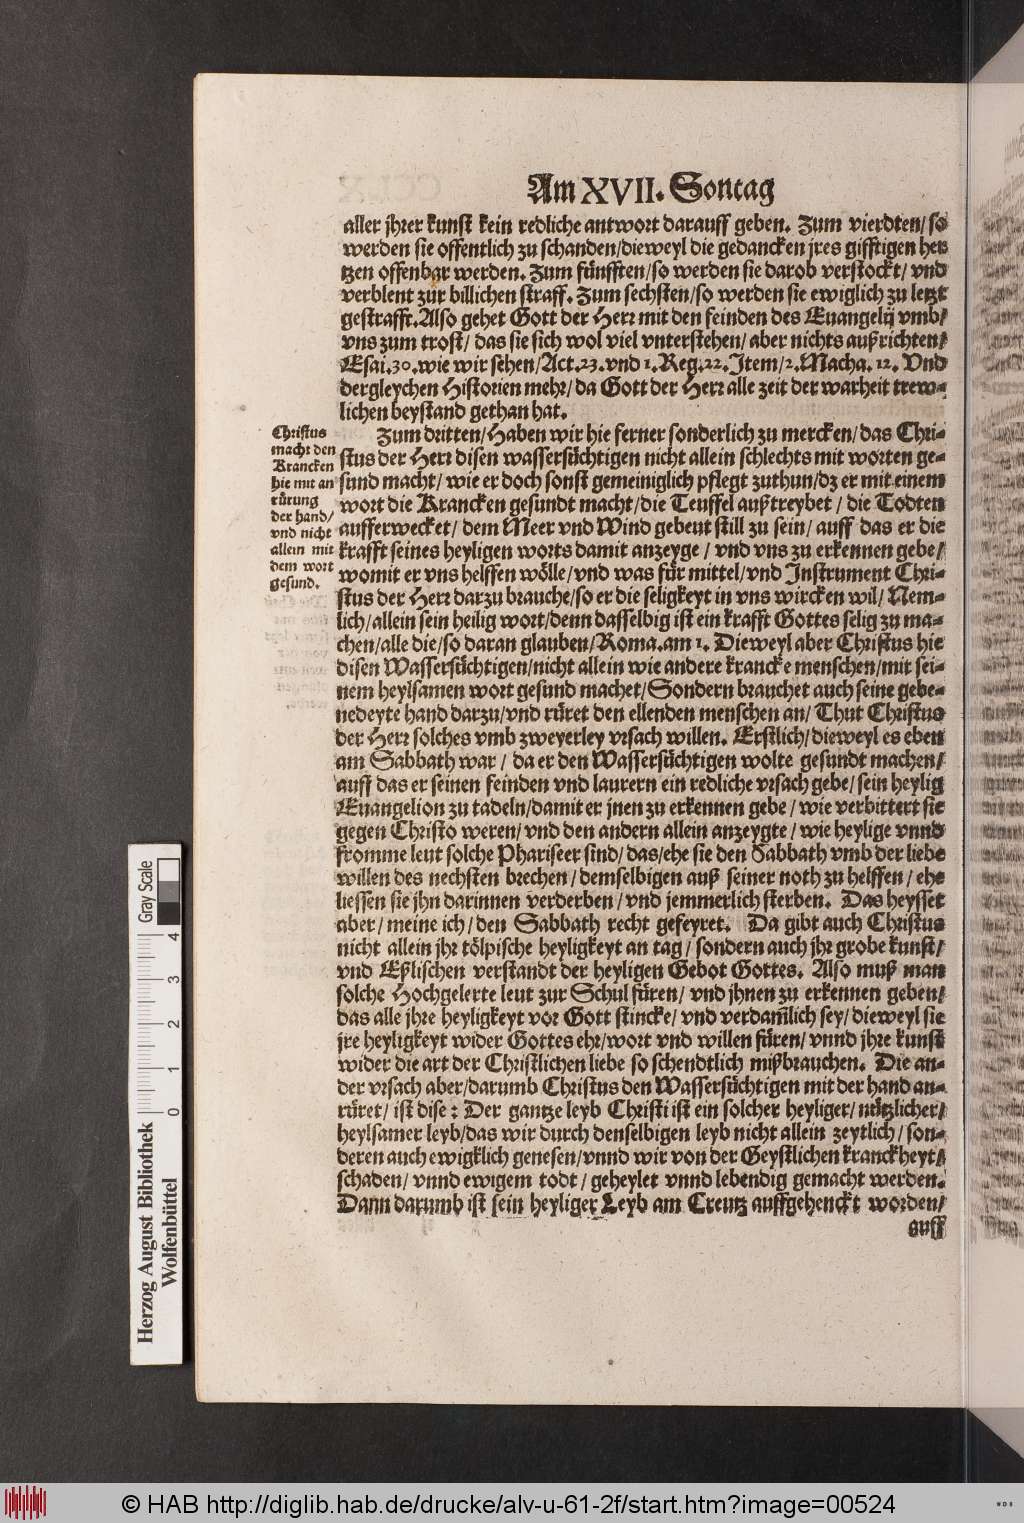 Am XVII. Sontag
aller jhrer kunst kein redliche antwort darauff geben. Zum vierdten/ so
werden sie offentlich zu schanden/dieweyl die gedancken jres gifftigen her
tzen offenbar werden. Zum fünfften/so werden sie darob verstockt/ vnd
verblent zur billichen straff. Zum sechsten/so werden sie ewiglich zu letzt
gestrafft.Also gehet Gott der Herr mit den feinden des Euangelij vmb/
vns zum trost/ das sie sich wol viel vnterstehen/ aber nichts außrichten/
Esai.30.wie wir sehen/Act.23.vnd 1.Reg.22.Item/2.Macha. 12. Vnd
dergleychen Historien mehr/ da Gott der Herr alle zeit der warheit trew-
lichen beystand gethan hat.
Christus
macht den
Krancken
hie mit an
rürung
der hand/
vnd nicht
allein mit
dem wort
gesund.
Zum dritten/Haben wir hie ferner sonderlich zu mercken/das Chri-
stus der Herr disen wassersüchtigen nicht allein schlechts mit worten ge-
sund macht/ wie er doch sonst gemeiniglich pflegt zuthun/dz er mit einem
wort die Krancken gesundt macht/die Teuffel außtreybet / die Todten
aufferwecket/ dem Meer vnd Wind gebeut still zu sein/ auff das er die
krafft seines heyligen worts damit anzeyge / vnd vns zu erkennen gebe/
womit er vns helffen wölle/vnd was für mittel/vnd Instrument Chri-
stus der Herr darzu brauche/so er die seligkeyt in vns wircken wil/ Nem-
lich/allein sein heilig wort/denn dasselbig ist ein krafft Gottes selig zu ma-
chen/alle die/so daran glauben/Roma.am 1. Dieweyl aber Christus hie
disen Wassersüchtigen/nicht allein wie andere krancke menschen/mit sei-
nem heylsamen wort gesund machet/Sondern brauchet auch seine gebe-
nedeyte hand darzu/vnd rüret den ellenden menschen an/ Thut Christus
der Herr solches vmb zweyerley vrsach willen. Erstlich/dieweyl es eben
am Sabbath war / da er den Wassersüchtigen wolte gesundt machen/
auff das er seinen feinden vnd laurern ein redliche vrsach gebe/sein heylig
Euangelion zu tadeln/damit er jnen zu erkennen gebe/ wie verbittert sie
gegen Christo weren/ vnd den andern allein anzeygte / wie heylige vnnd
fromme leut solche Phariseer sind/ das/ehe sie den Sabbath vmb der liebe
willen des nechsten brechen/ demselbigen auß seiner noth zu helffen/ ehe
liessen sie jhn darinnen verderben/ vnd jemmerlich sterben. Das heysset
aber/ meine ich/ den Sabbath recht gefeyret. Da gibt auch Christus
nicht allein jhr tölpische heyligkeyt an tag/ sondern auch jhr grobe kunst/
vnd Eßlischen verstandt der heyligen Gebot Gottes. Also muß man
solche Hochgelerte leut zur Schul füren/ vnd jhnen zu erkennen geben/
das alle jhre heyligkeyt vor Gott stincke/ vnd verdam̃lich sey/ dieweyl sie
jre heyligkeyt wider Gottes ehr/wort vnd willen füren/ vnnd jhre kunst
wider die art der Christlichen liebe so schendtlich mißbrauchen. Die an-
der vrsach aber/darumb Christus den Wassersüchtigen mit der hand an-
rüret/ ist dise: Der gantze leyb Christi ist ein solcher heyliger/ nützlicher/
heylsamer leyb/das wir durch denselbigen leyb nicht allein zeytlich/ son-
deren auch ewigklich genesen/vnnd wir von der Geystlichen kranckheyt/
schaden/ vnnd ewigem todt/ geheylet vnnd lebendig gemacht werden.
Dann darumb ist sein heyliger Leyb am Creutz auffgehenckt worden/
auff
Herzog August Bibliothek
Wolfenbüttel
0 1 2 3 4
Gray Scale
© HAB http://diglib.hab.de/drucke/alv-u-61-2f/start.htm?image=00524